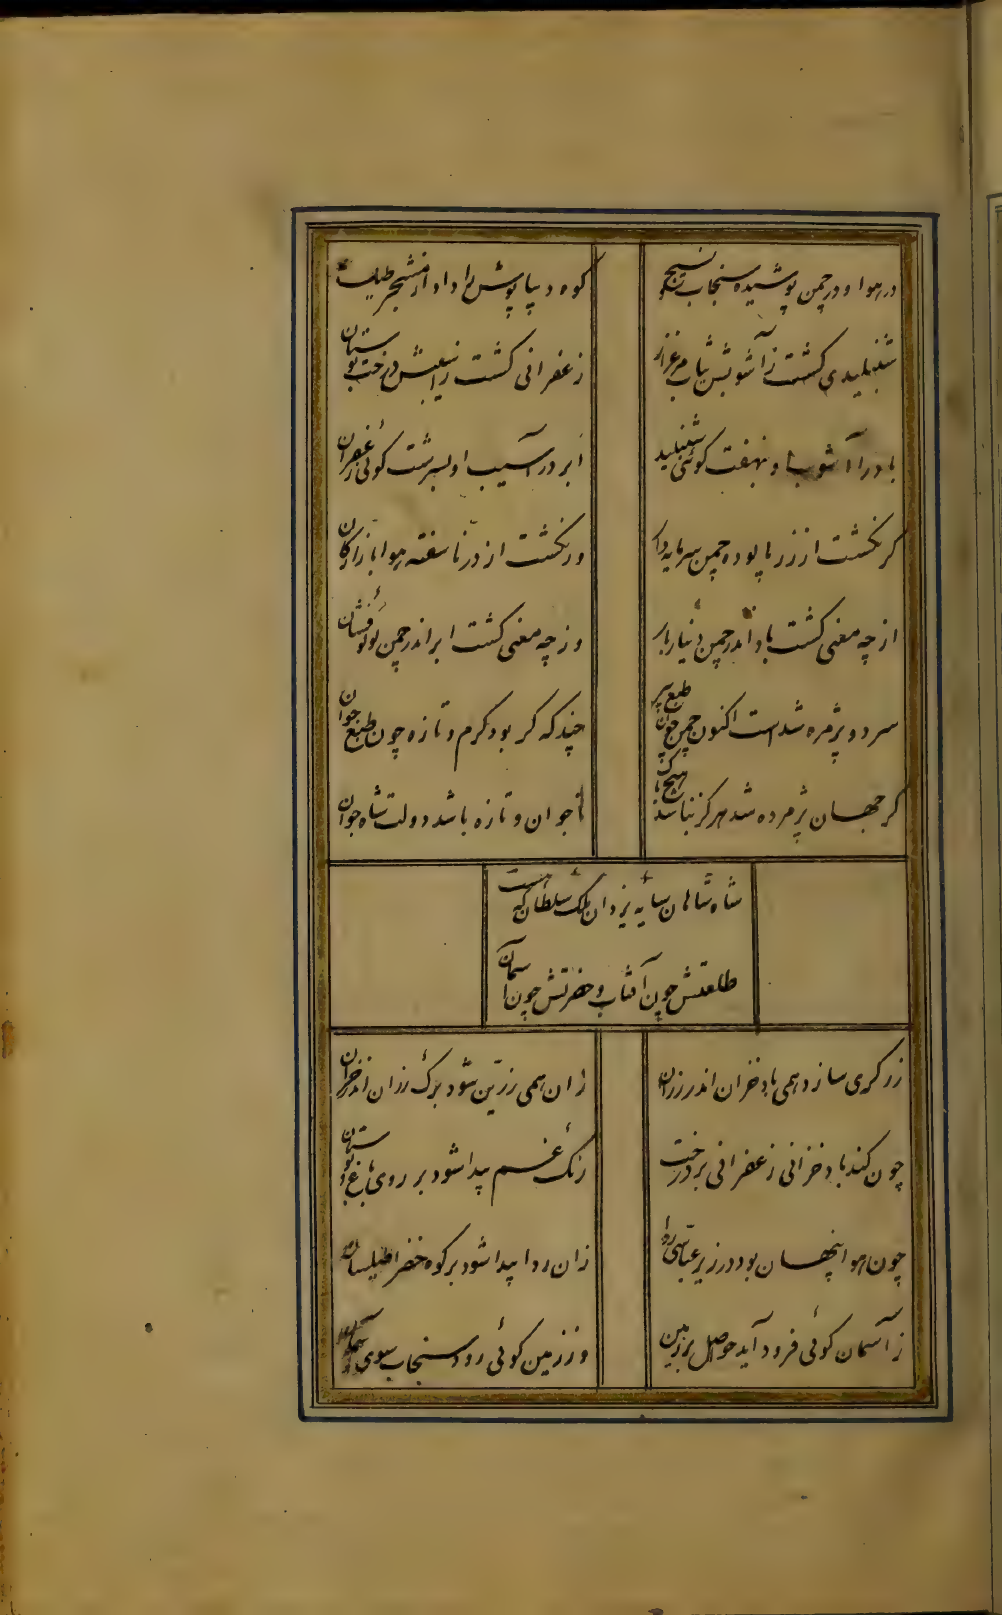 در هوا و در چمن پوشیده سنجاب نسیج
کوه دیبا پوش را داد از مشجر طیلسان
شنبلیدی گشت ز آشوبش شاخ مرغزار
زعفرانی گشت ز آسیبش درخت بوستان
باد را آشوب باد و نهفت کوئی شنبلید
ابر در آسیب او بسرشت کوئی زعفران
گر نگشت از زر پالوده چمن سرمایه دار
ور نگشت از در ناسفته هوا بازارگان
از چه معنی گشت باد اندر چمن دینار بار
وز چه معنی گشت ابر اندر چمن لؤلؤ فشان
سرد و پژمرده شد است اکنون چمن چون طبع پیر
چند که گر بود گرم و تازه چون طبع جوان
گر جهان پژمرده شد هرگز نباشد هیچ باک
تا جوان و تازه باشد دولت شاه جوان
شاه شاهان سایه یزدان ملک سلطان که هست
طلعتش چون آفتاب و حضرتش چون آسمان
زرگری سازد همی باد خزان اندر رزان
زان همی زرین شود برگ رزان اندر خزان
چون کند باد خزانی زعفرانی بر درخت
رنگ غم پیدا شود بر روی باغ و بوستان
چون هوا پنهان بود در زیر عباسی ردا
زان ردا پیدا شود بر کوه خضرا طیلسان
ز آسمان کوئی فرود آید حواصل بر زمین
وز زمین کوئی رود سنجاب سوی آسمان